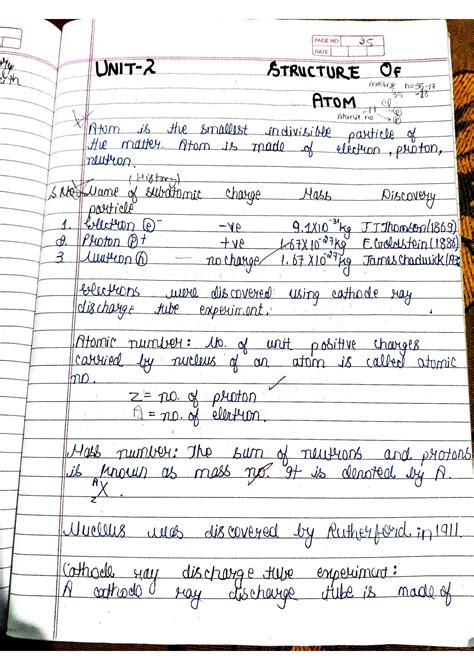 PAGE NO 35
DATE
UNIT-2 STRUCTURE OF
ATOM
n=35-17
=18
35
Cl
Atomic no
Atom is the smallest indivisible particle of
the matter. Atom is made of electron, proton,
neutron.
(History)
S.No. Name of subatomic charge Mass Discovery
particle
1. Electron e⁻ -ve 9.1X10⁻³¹kg J.J Thomson(1869)
2. Proton P+ +ve 1.67X10⁻²⁷kg E. Goldstein(1886)
3 Neutron n no charge 1.67X10⁻²⁷kg James Chadwick
Electrons were discovered using cathode ray
discharge tube experiment.
Atomic number: No. of unit positive charges
carried by nucleus of an atom is called atomic
no.
Z = no. of proton
A = no. of electron.
Mass number: The sum of neutrons and protons
is known as mass no. It is denoted by A.
A
X.
Z
Nucleus was discovered by Rutherford in 1911.
Cathode ray discharge tube experiment:
A cathode ray discharge tube is made of